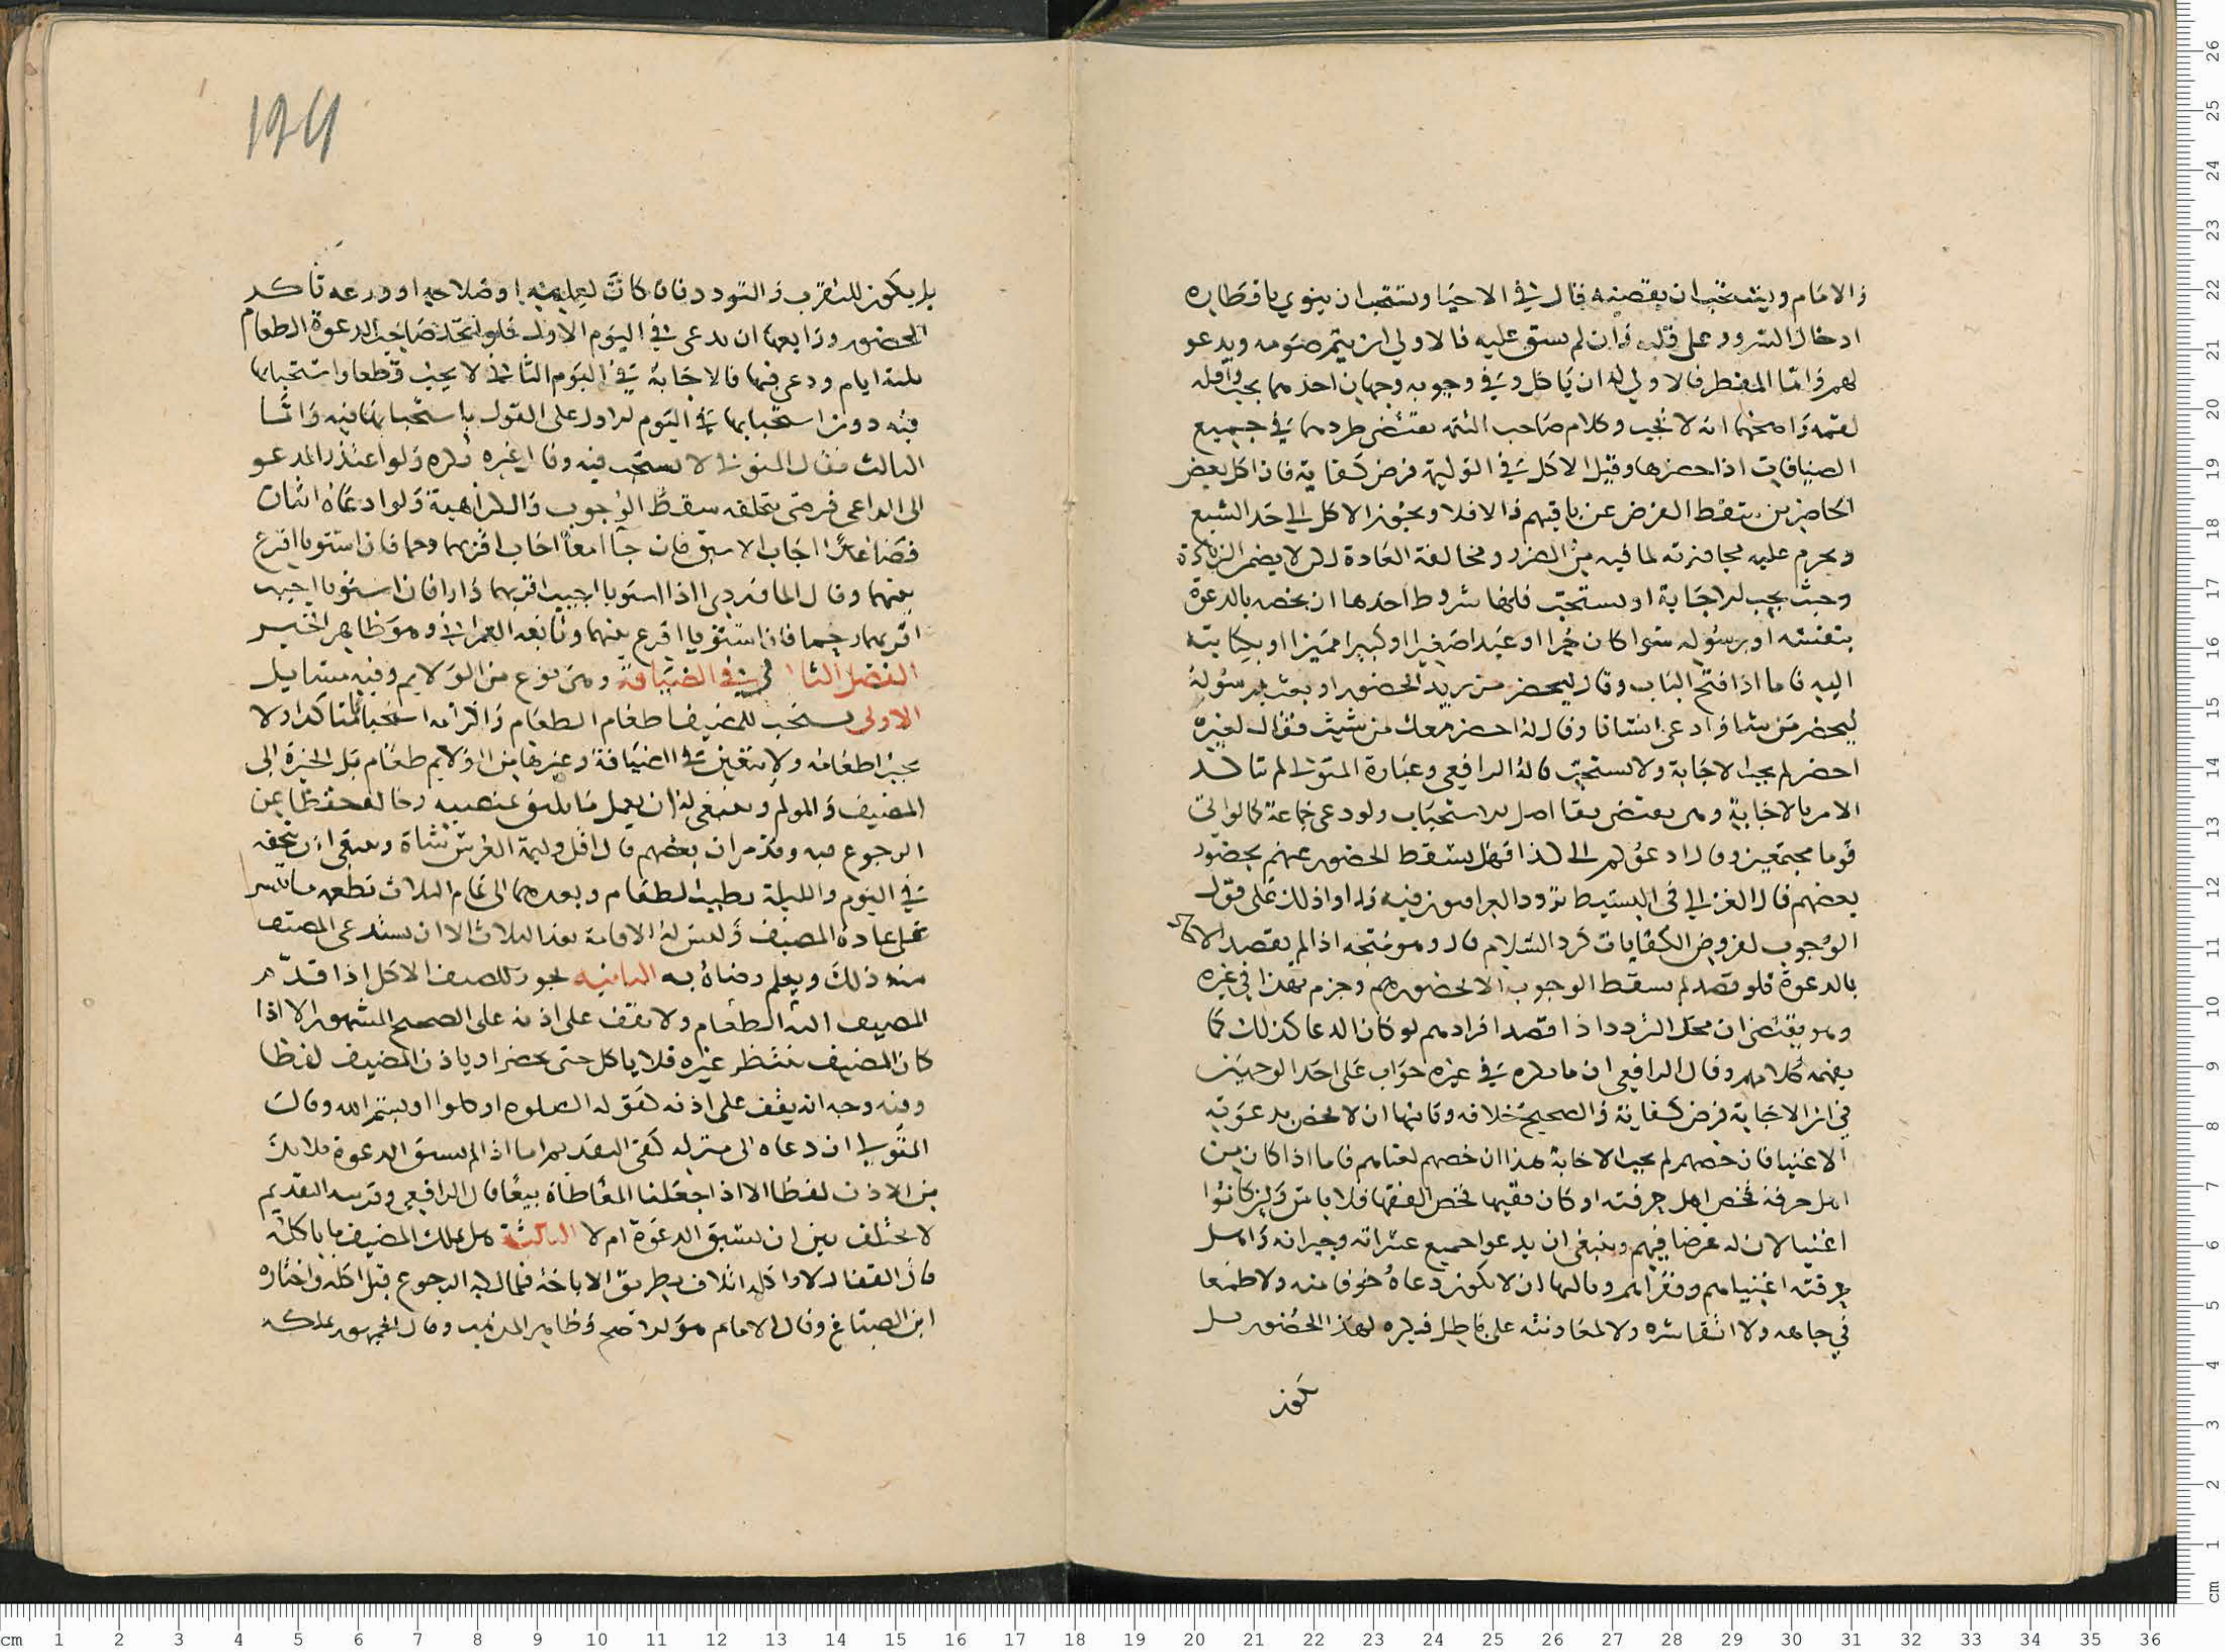 والامام ويستحب ان يقصيه قال في الاحيا ويستحب ان ينوي بافطاره
ادخال السرور على قلبه وان لم يشق عليه فالاولى ان يتم صومه ويدعو
لهم واما المفطر فالاولى له ان ياكل وفي وجوبه وجهان احدهما يجب واقله
لقمة واصحهما انه لا يجب وكلام صاحب التتمة يقتضي طردهما في جميع
الضيافات اذا حضرها وقيل الاكل في الوليمة فرض كفاية فاذا اكل بعض
الحاضرين سقط الفرض عن باقيهم والا فلا ويجوز الاكل الى حد الشبع
ويحرم عليه مجاوزته لما فيه من الضرر ومخالفة العادة لكن لا يضمن الزيادة
وحيث يجب الاجابة او يستحب فلها شروط احدها ان يخصه بالدعوة
بنفسه او رسوله سوا كان حرا او عبدا صغيرا او كبيرا مميزا او بكتابته
اليه فاما اذا فتح الباب وقال ليحضر من يريد الحضور او بعث رسوله
ليحضر من شا او ادعى انسانا وقال له احضر معك من شيت فقال لغيره
احضر لم يجب الاجابة ولا يستحب قاله الرافعي وعبارة المتولي لم تتاكد
الامر بالاجابة وهي يقتضي بقا اصل الاستحباب ولو دعى جماعة كما لو اتى
قوما مجتمعين وقال ادعوكم الى كذا فهل يسقط الحضور عنهم بحضور
بعضهم قال الغزالي في البسيط تردد العراقيون فيه وادا وذلك على قول
الوجوب لفروض الكفايات كرد السلام قال وهو متجه اذا لم يقصد الاحاد
بالدعوة فلو قصد لم يسقط الوجوب الا بحضورهم وجزم بهذا في غيره
وهو يقتضي ان محل التردد اذا قصد افرادهم لو كان الدعا كذلك كما
يفهمه كلامهم وقال الرافعي ان ما ذكره في غيره جواب على احد الوجهين
في ان الاجابة فرض كفاية والصحيح خلافه وثانيها ان لا يخص بدعوته
الاغنيا فان خصهم لم يجب الاجابة هذا ان خصهم لغناهم فاما اذا كان من
اهل حرفة فخص اهل حرفته او كان فقيها فخص الفقها فلا باس وان كانوا
اغنيا لان له غرضا فيهم وينبغي ان يدعوا جميع عشيرته وجيرانه واهل
حرفته اغنيايهم وفقرايهم وثالثها ان لا يكون دعاه خوفا منه ولا طمعا
في جاهه ولا اتقا شره ولا لمعاونته على باطل فيكره لهذا الحضور بل
يكون
بل يكون للتقرب والتودد فان كانت لعلمه او صلاحه او ورعه تاكد
الحضور ورابعها ان يدعى في اليوم الاول فلو اتخذ صاحب الدعوة الطعام
ثلثة ايام ودعى فيها فالاجابة في اليوم الثاني لا يجب قطعا واستحبابها
فيه دون استحبابها في اليوم الاول على القول باستحبابها فيه واما
الثالث فقال المتولي لا يستحب فيه وقال غيره يكره ولو اعتذر المدعو
الى الداعي فرضي بتخلفه سقط الوجوب والكراهية ولو دعاه اثنان
فصاعدا اجاب الاسبق فان جاا معا اجاب اقربهما رحما فان استويا اقرع
بينهما وقال الماوردي اذا استويا اجيب اقربهما دارا فان استويا اجيب
اقربهما رحما فان استويا اقرع بينهما وتابعه العمراني وهو ظاهر الخبر
الفصل الثاني في الضيافة وهي نوع من الولايم وفيه مسايل
الاولى يستحب للمضيف اطعام الطعام واكرامه استحبابا متاكدا ولا
يجب اطعامه ولا يتعين في الضيافة وغيرها من الولايم طعام بل الخيرة الى
المضيف والمولم وينبغي له ان يعمل ما يليق بمنصبيه وحاله
الرجوع فيه وقد مر ان بعضهم قال اقل وليمة العرس شاة وينبغي ان يتحفه
في اليوم والليلة بطيب الطعام وبعدهما الى تمام الثلاث تطعمه ما تيسر
على عادة المضيف وليس له الاقامة بعد الثلاث الا ان يستدعي المضيف
منه ذلك ويعلم رضاه به الثانية يجوز للضيف الاكل اذا قدم
المضيف اليه الطعام ولا يقف على اذنه على الصحيح المشهور الا اذا
كان المضيف ينتظر غيره فلا ياكل حتى يحضر او ياذن المضيف لفظا
وفيه وجه انه يقف على اذنه كقوله الصلوه او كلوا او بسم الله وقال
المتولي ان دعاه الى منزله كفى التقديم اما اذا لم يسبق الدعوة فلا بد
من الاذن لفظا الا اذا جعلنا المعاطاة بيعا قال الرافعي وقرينة التقديم
لا يختلف بين ان يسبق الدعوة ام لا الثالثة هل يملك المضيف ما ياكله
قال القفال لا واكله اتلاف بطريق الاباحة فللمالك الرجوع قبل اكله واختاره
ابن الصباغ وقال الامام هو الاصح وظاهر المذهب وقال الجمهور يملكه